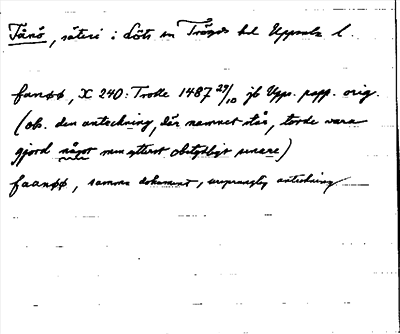 Fånö, säteri i Löts sn Trögds hd Uppsala l.
fanøø, X 240: Trolle 1487 29/10 jb Upps. papp. orig.
(obs. den anteckning, där namnet står, torde vara
gjord något men ytterst obetydligt senare)
faanøø, samma dokument, ursprunglig anteckning